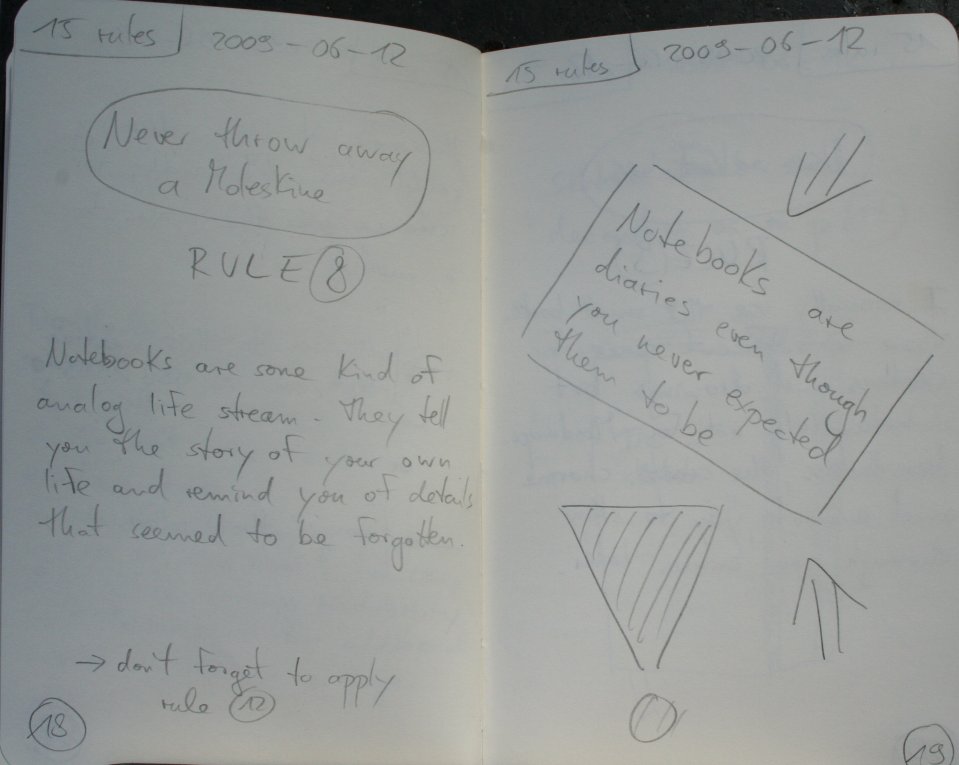 15 rules
2009-06-12
Never throw away
a Moleskine
RULE 8
Notebooks are some kind of
analog life stream. They tell
you the story of your own
life and remind you of details
that seemed to be forgotten.
→ don't forget to apply
rule 12
18
15 rules
2009-06-12
Notebooks are
diaries even though
you never expected
them to be
19